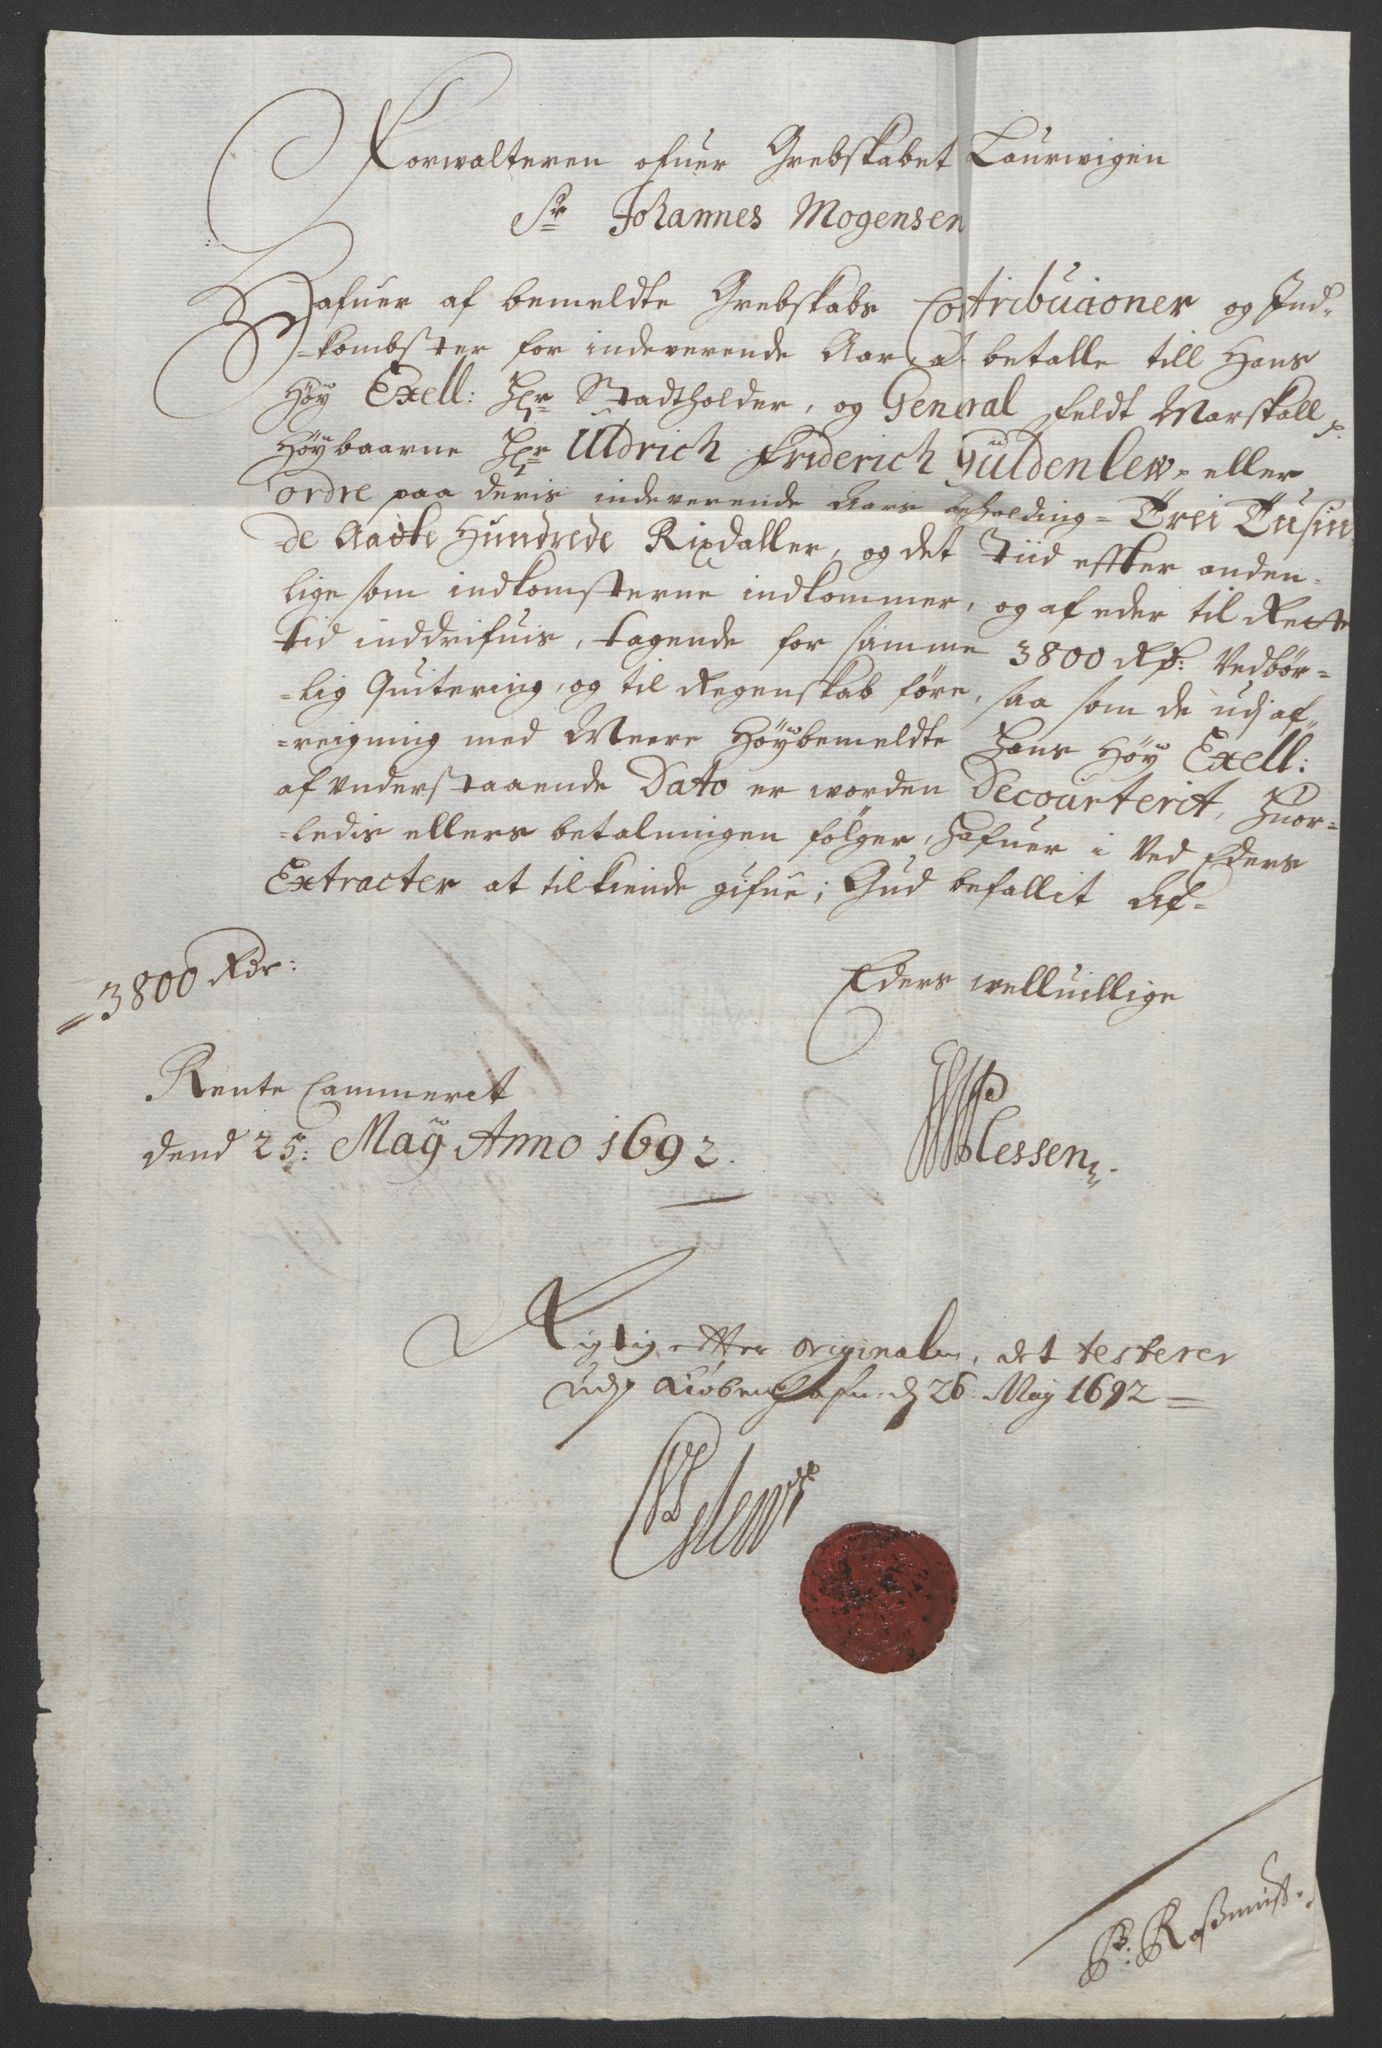 Forwalteren ofuer Grebskabet Laurwigen
Sr Johannes Mogensen
Hafuer af bemeldte Grebskabs Contribucioner og Ind-
-kombster for indeverende Aar, at betalle till Hans
Høy Exell: Hr Stadtholder, og General Feldt Marskall
Høybaarne Hr Uldrich Friderich Güldenlew- eller
ordre paa deris indeverende Aars beholding- Trei Tusin-
de Aadte Hundrede Rixdaller, og det Tiid effter anden-
lige som indkomsterne indkommer, og af eder til Rette
tid inddrifuis, tagende for samme 3800 Rd: Vedbør-
-lig Quitering, og til Regenskab føre, saa som de udj af-
-reigning med Meere Høybemeldte Hans Høy Exell:
af Understaaende Dato er worden Decourterit, Huor-
-ledis ellers betalningen følger, Hafuer i Ved Eders
Extracter at tilkiende gifue; Gud befallit Af-
3800 Rdr:
Eders welluillige
Rente Cammeret
dend 25: Maÿ Anno 1692.
Plessen
Rigtig etter originalen, det testerer
udj Kiøbenhafn d 26 May 1692